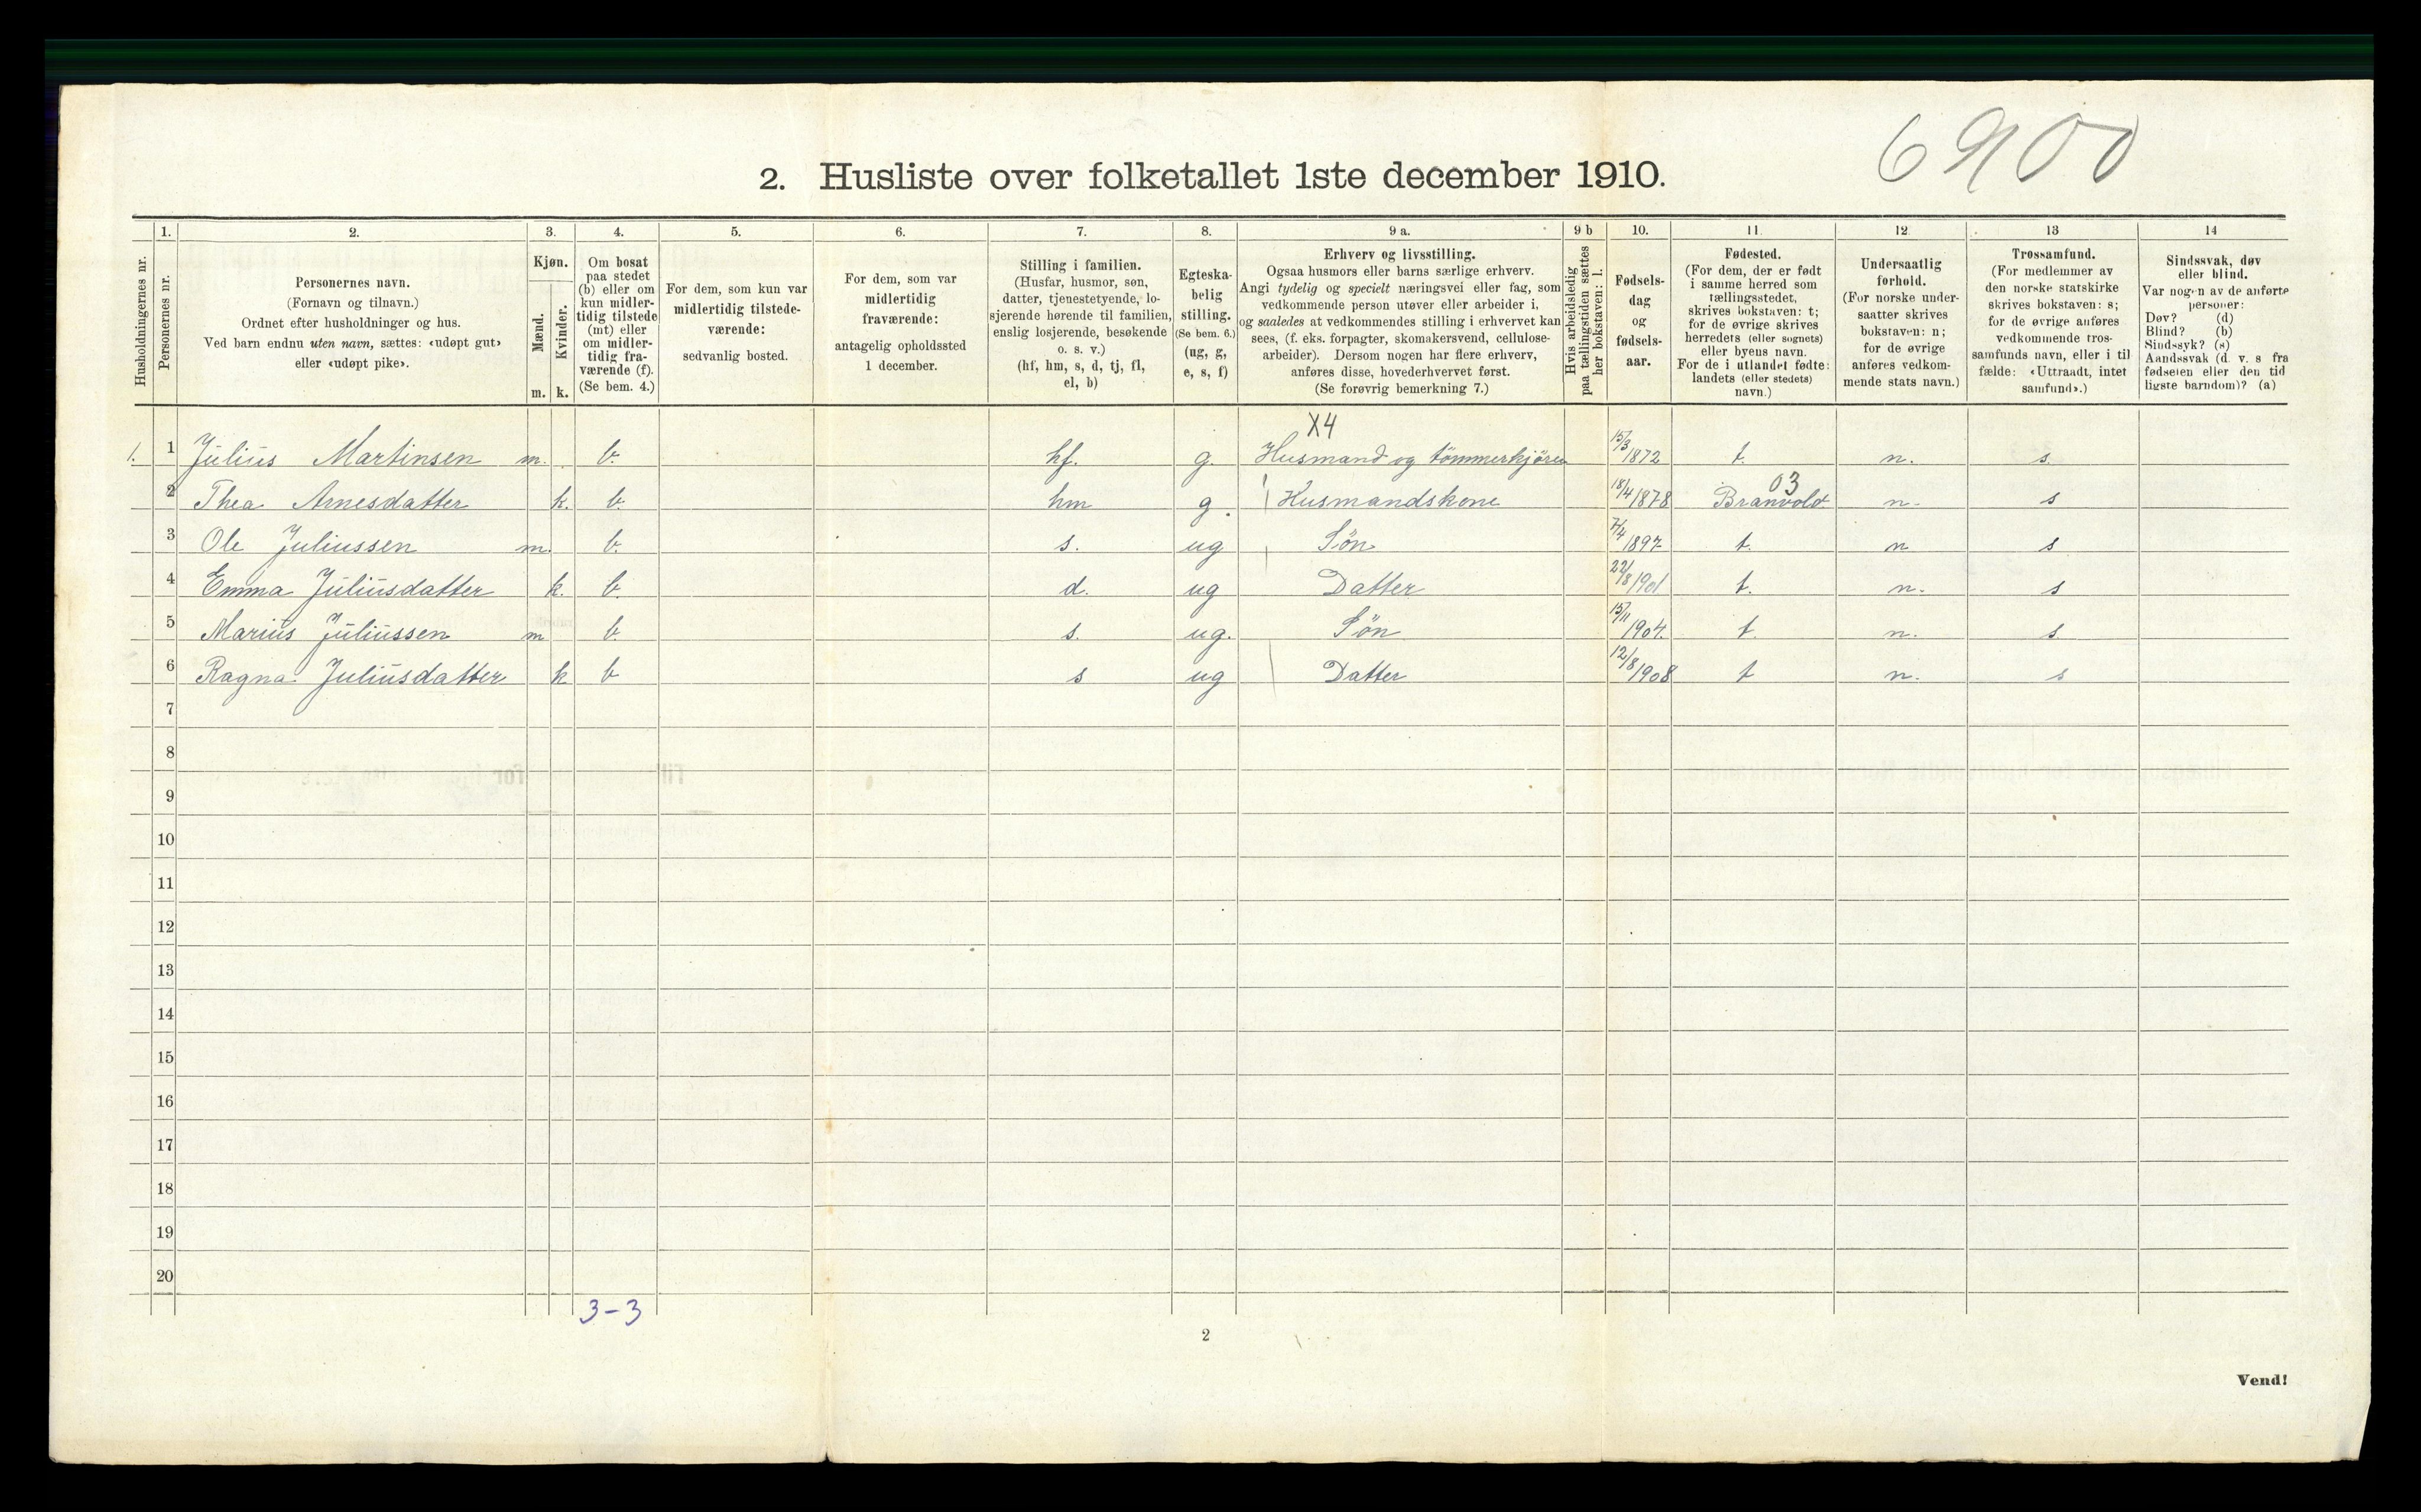 6900
2. Husliste over folketallet 1ste december 1910.
Husholdningernes nr.
1. Personernes nr.
2. Personernes navn. (Fornavn og tilnavn.) Ordnet efter husholdninger og hus. Ved barn endnu uten navn, sættes: «udøpt gut» eller «udøpt pike».
3. Kjøn. Mænd. m. Kvinder. k.
4. Om bosat paa stedet (b) eller om kun midlertidig tilstede (mt) eller om midlertidig fraværende (f). (Se bem. 4.)
5. For dem, som kun var midlertidig tilstedeværende: sedvanlig bosted.
6. For dem, som var midlertidig fraværende: antagelig opholdssted 1 december.
7. Stilling i familien. (Husfar, husmor, søn, datter, tjenestetyende, losjerende hørende til familien, enslig losjerende, besøkende o. s. v.) (hf, hm, s, d, tj, fl, el, b)
8. Egteskabelig stilling. (Se bem. 6.) (ug, g, e, s, f)
9 a. Erhverv og livsstilling. Ogsaa husmors eller barns særlige erhverv. Angi tydelig og specielt næringsvei eller fag, som vedkommende person utøver eller arbeider i, og saaledes at vedkommendes stilling i erhvervet kan sees, (f. eks. forpagter, skomakersvend, cellulosearbeider). Dersom nogen har flere erhverv, anføres disse, hovederhvervet først. (Se forøvrig bemerkning 7.)
9 b Hvis arbeidsledig paa tællingstiden sættes her bokstaven: l.
10. Fødselsdag og fødselsaar.
11. Fødested. (For dem, der er født i samme herred som tællingsstedet, skrives bokstaven: t; for de øvrige skrives herredets (eller sognets) eller byens navn. For de i utlandet fødte: landets (eller stedets) navn.)
12 Undersaatlig forhold. (For norske undersaatter skrives bokstaven: n; for de øvrige anføres vedkommende stats navn.)
13 Trossamfund. (For medlemmer av den norske statskirke skrives bokstaven: s; for de øvrige anføres vedkommende trossamfunds navn, eller i tilfælde: «Uttraadt, intet samfund».)
14 Sindssvak, døv eller blind. Var nogen av de anførte personer: Døv? (d) Blind? (b) Sindssyk? (s) Aandssvak (d. v. s fra fødselen eller den tidligste barndom)? (a)
X4
1. 1 Julius Martinsen m. b. hf. g. Husmand og tömmerkjörer 15/3 1872 t. n. s.
03
2 Thea Arnesdatter k. b. hm g. Husmandskone 18/4 1878 Branvold n. s
3 Ole Juliussen m. b. s. ug Sön 7/4 1897 t. n s
4 Emma Juliusdatter k. b. d. ug Datter 22/8 1901 t. n. s
5 Marius Juliussen m b. s. ug. Sön 15/11 1904. t n. s
6 Ragna Juliusdatter k b s ug Datter 12/8 1908 t n. s
7
8
9
10
11
12
13
14
15
16
17
18
19
20
3-3
2
Vend!